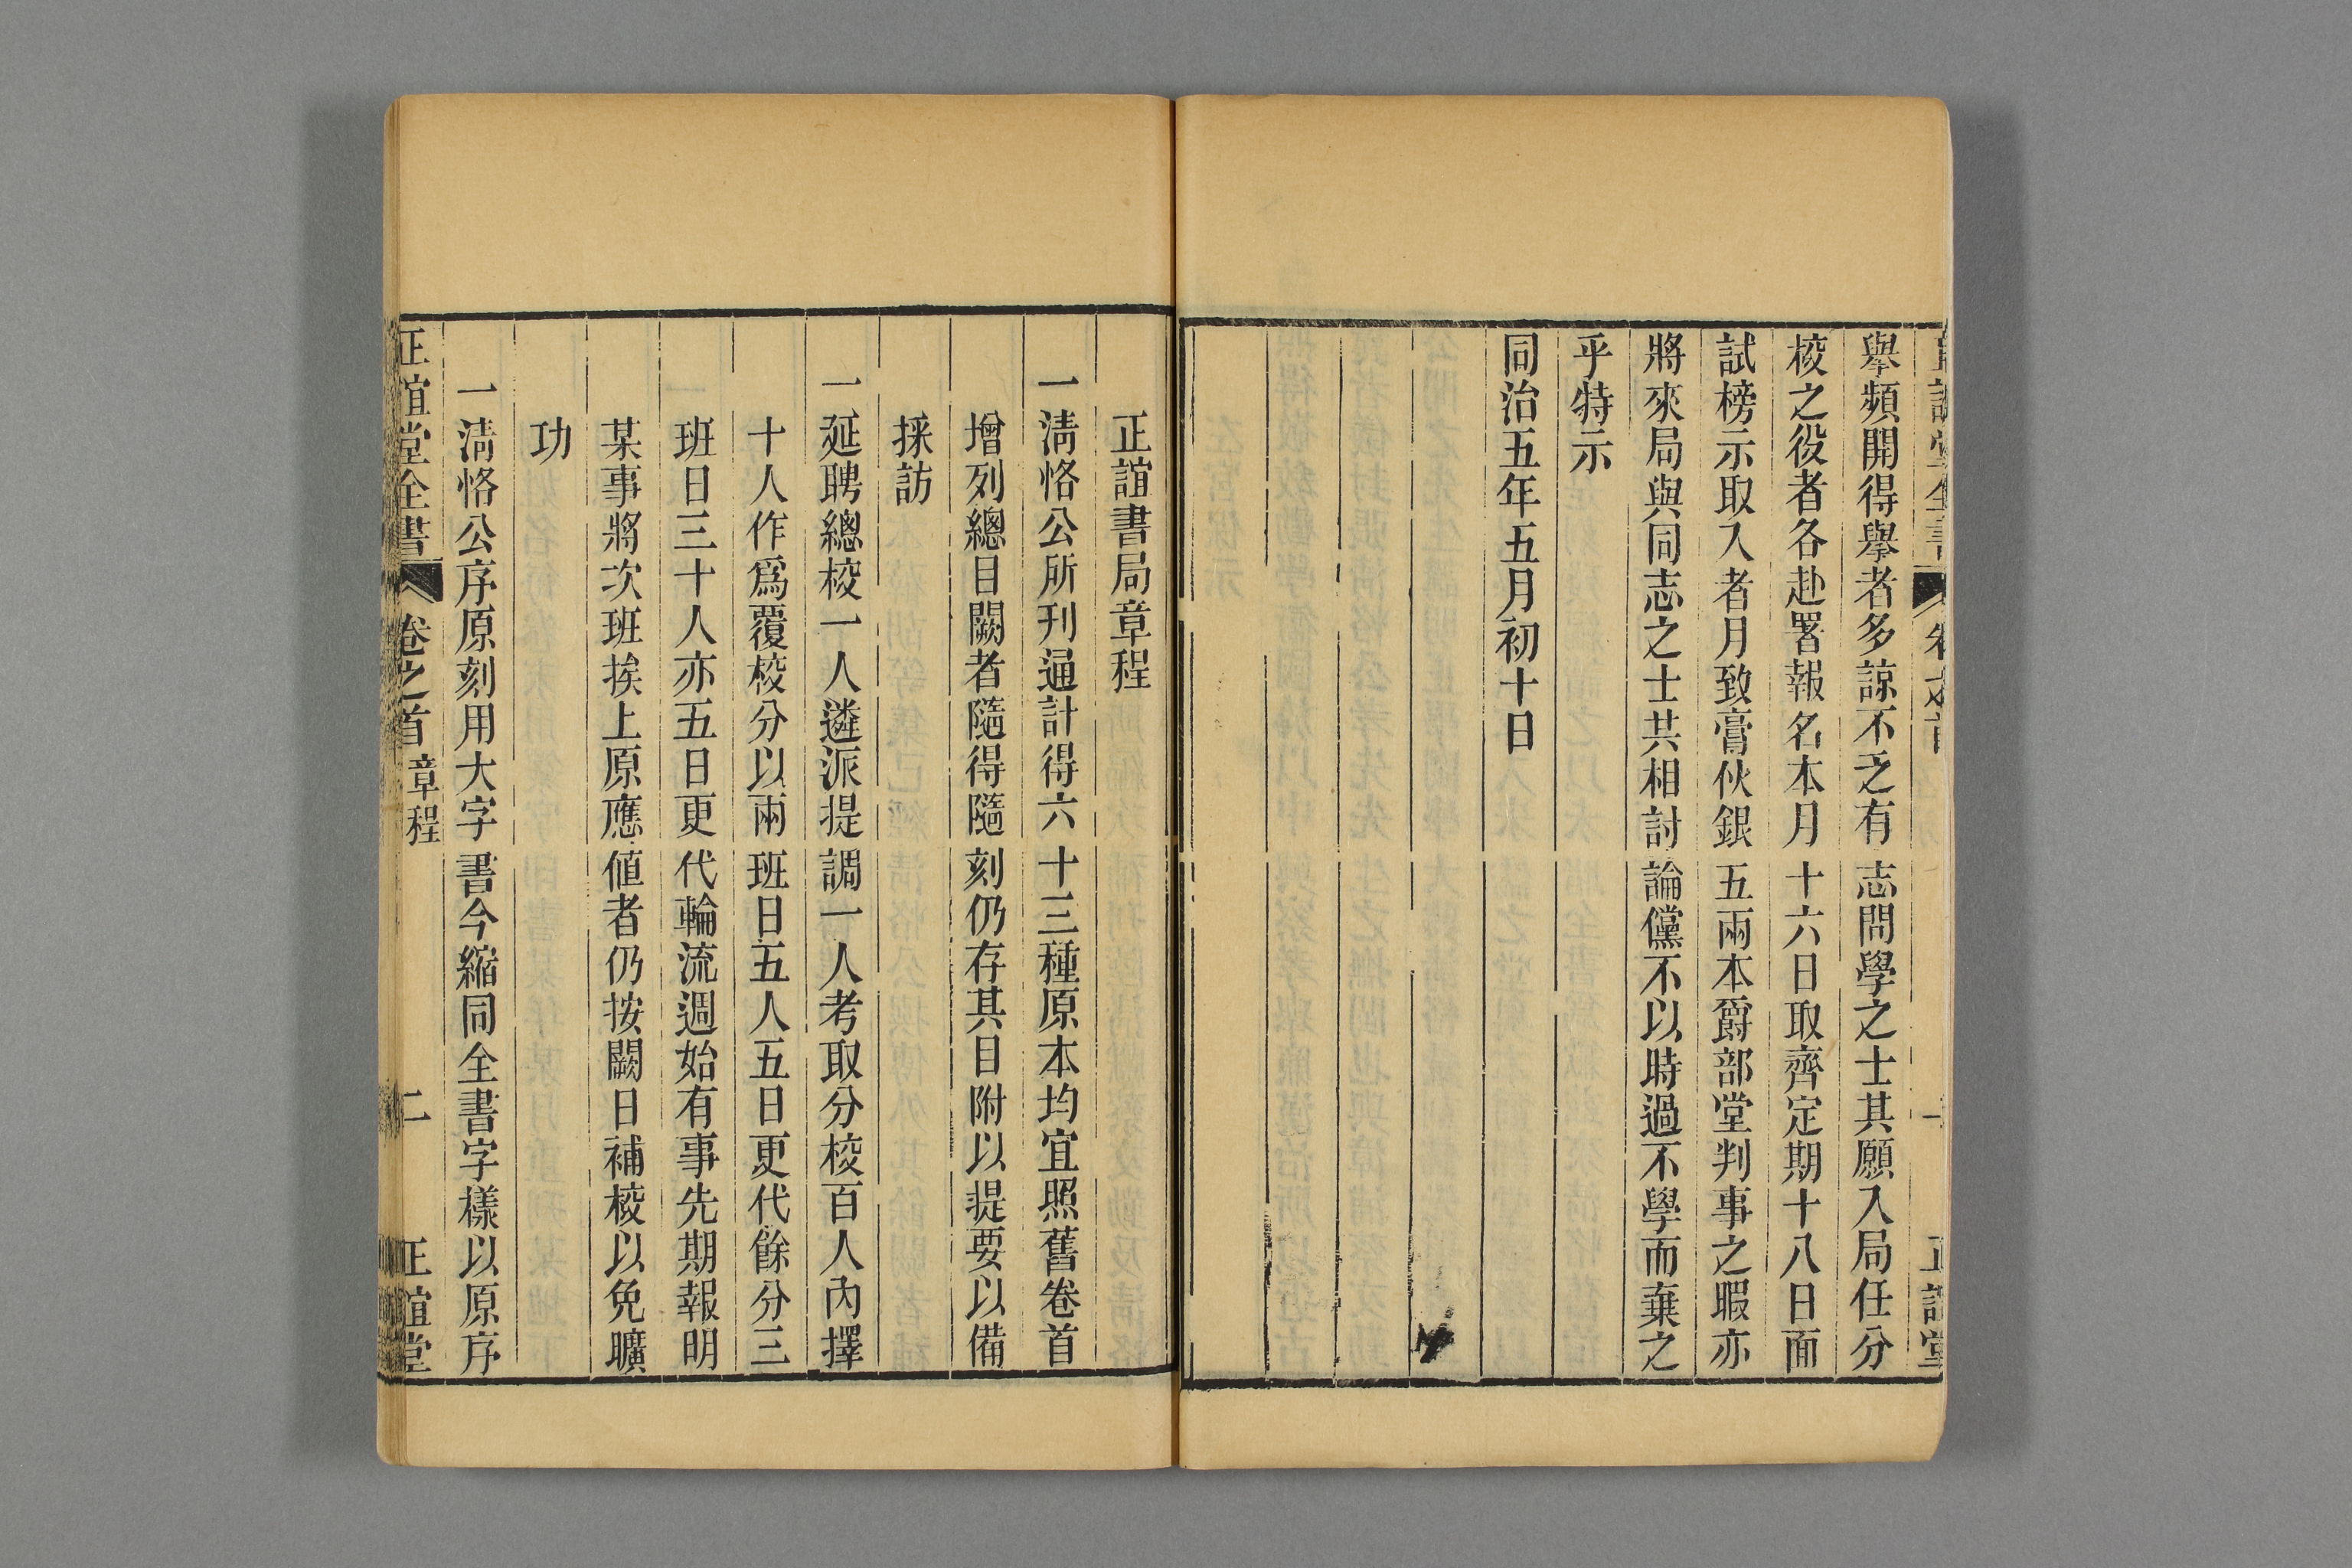 舉頻開得舉者多諒不乏有志問學之士其願入局任分
校之役者各赴署報名本月十六日取齊定期十八日面
試榜示取入者月致膏伙銀五兩本爵部堂判事之暇亦
將來局與同志之士共相討論儻不以時過不學而棄之
乎特示
同治五年五月初十日
正誼書局章程
一清恪公所刊通計得六十三種原本均宜照舊卷首
增列總目闕者隨得隨刻仍存其目附以提要以備
採訪
一延聘總校一人遴派提調一人考取分校百人內擇
十人作爲覆校分以兩班日五人五日更代餘分三
班日三十人亦五日更代輪流週始有事先期報明
某事將次班挨上原應値者仍按闕日補校以免曠
功
一清恪公序原刻用大字書今縮同全書字樣以原序
正誼堂全書 卷之首 章程 二 正誼堂